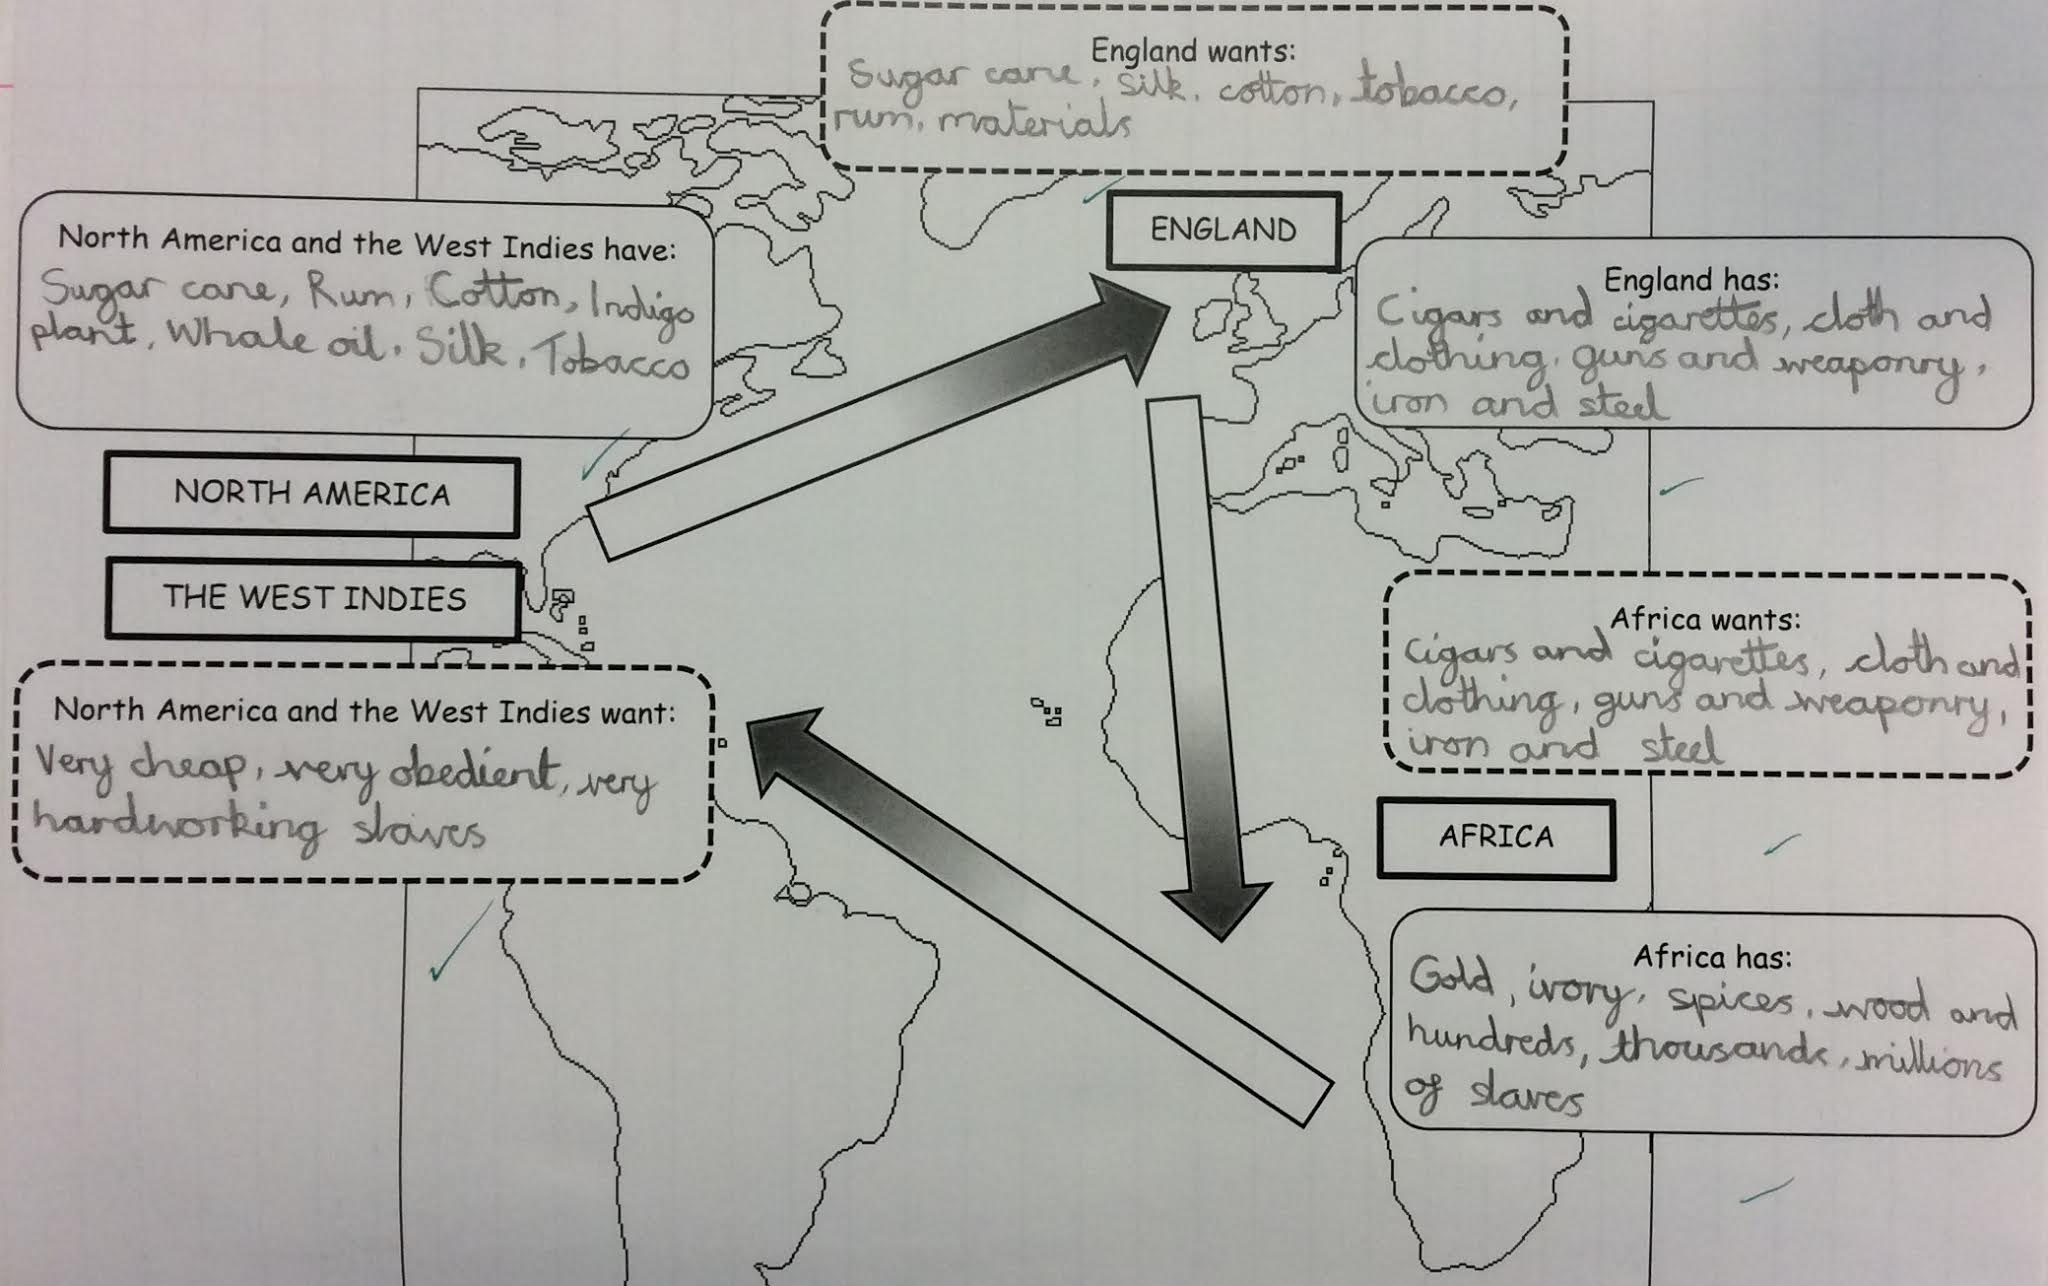 England wants:
Sugar cane, silk, cotton, tobacco,
rum, materials
ENGLAND
North America and the West Indies have:
Sugar cane, Rum, Cotton, Indigo
plant, Whale oil, Silk, Tobacco
England has:
Cigars and cigarettes, cloth and
clothing, guns and weaponry,
iron and steel
NORTH AMERICA
THE WEST INDIES
Africa wants:
Cigars and cigarettes, cloth and
clothing, guns and weaponry,
iron and steel
North America and the West Indies want:
Very cheap, very obedient, very
hardworking slaves
AFRICA
Africa has:
Gold, ivory, spices, wood and
hundreds, thousands, millions
of slaves